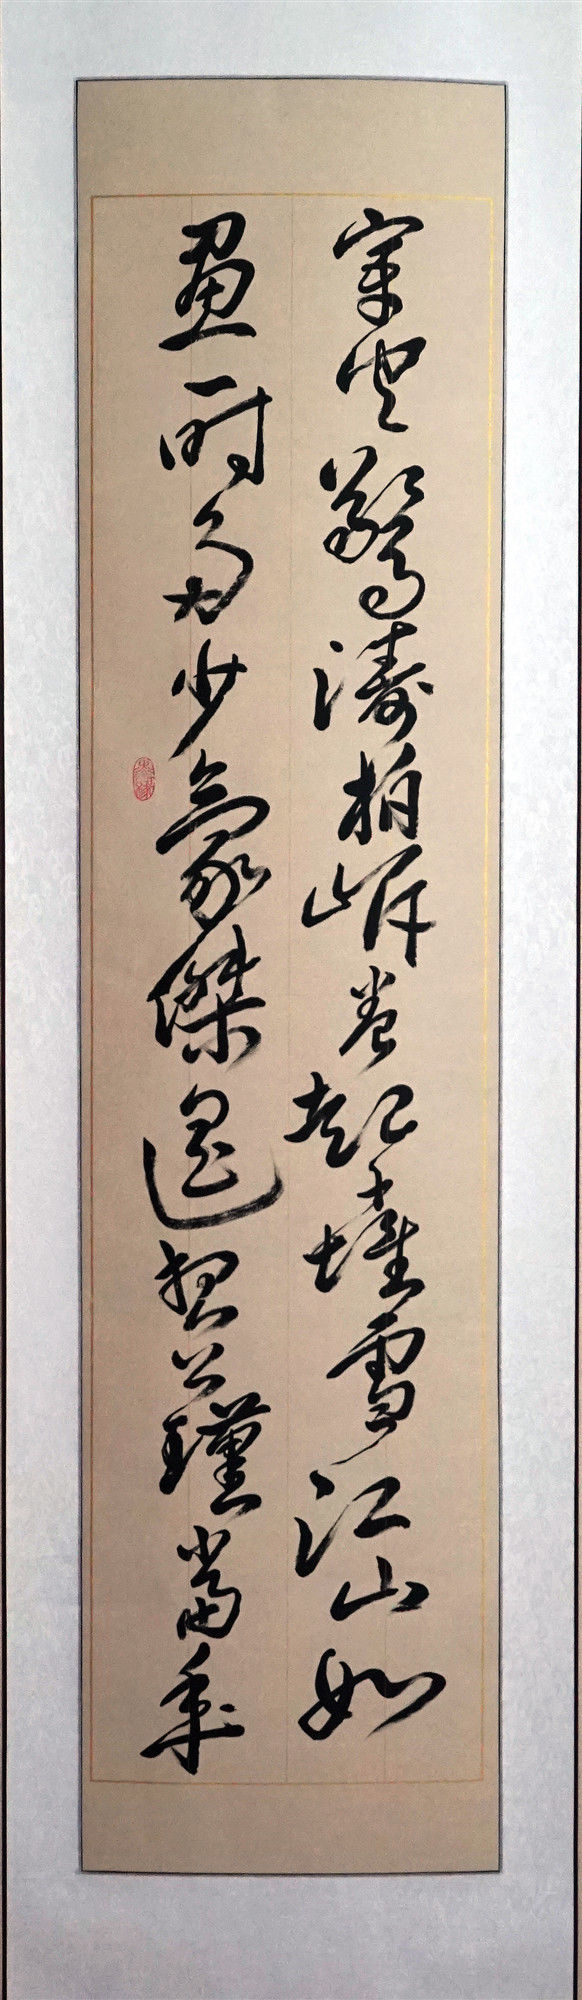 穿空驚濤拍岸卷起千堆雪江山如
畫一時多少豪傑遙想公瑾當年